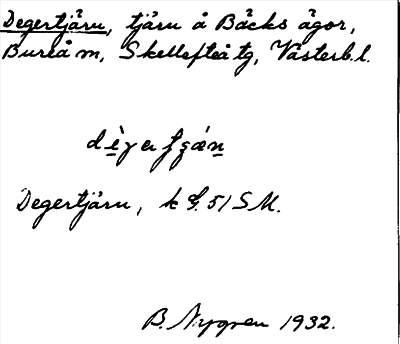 Degertjärn, tjärn å Bäcks ägor,
Bureå m, Skellefteå tg, Västerb.l.
Degertjärn, k 51 SM.
B. Nygren 1932.